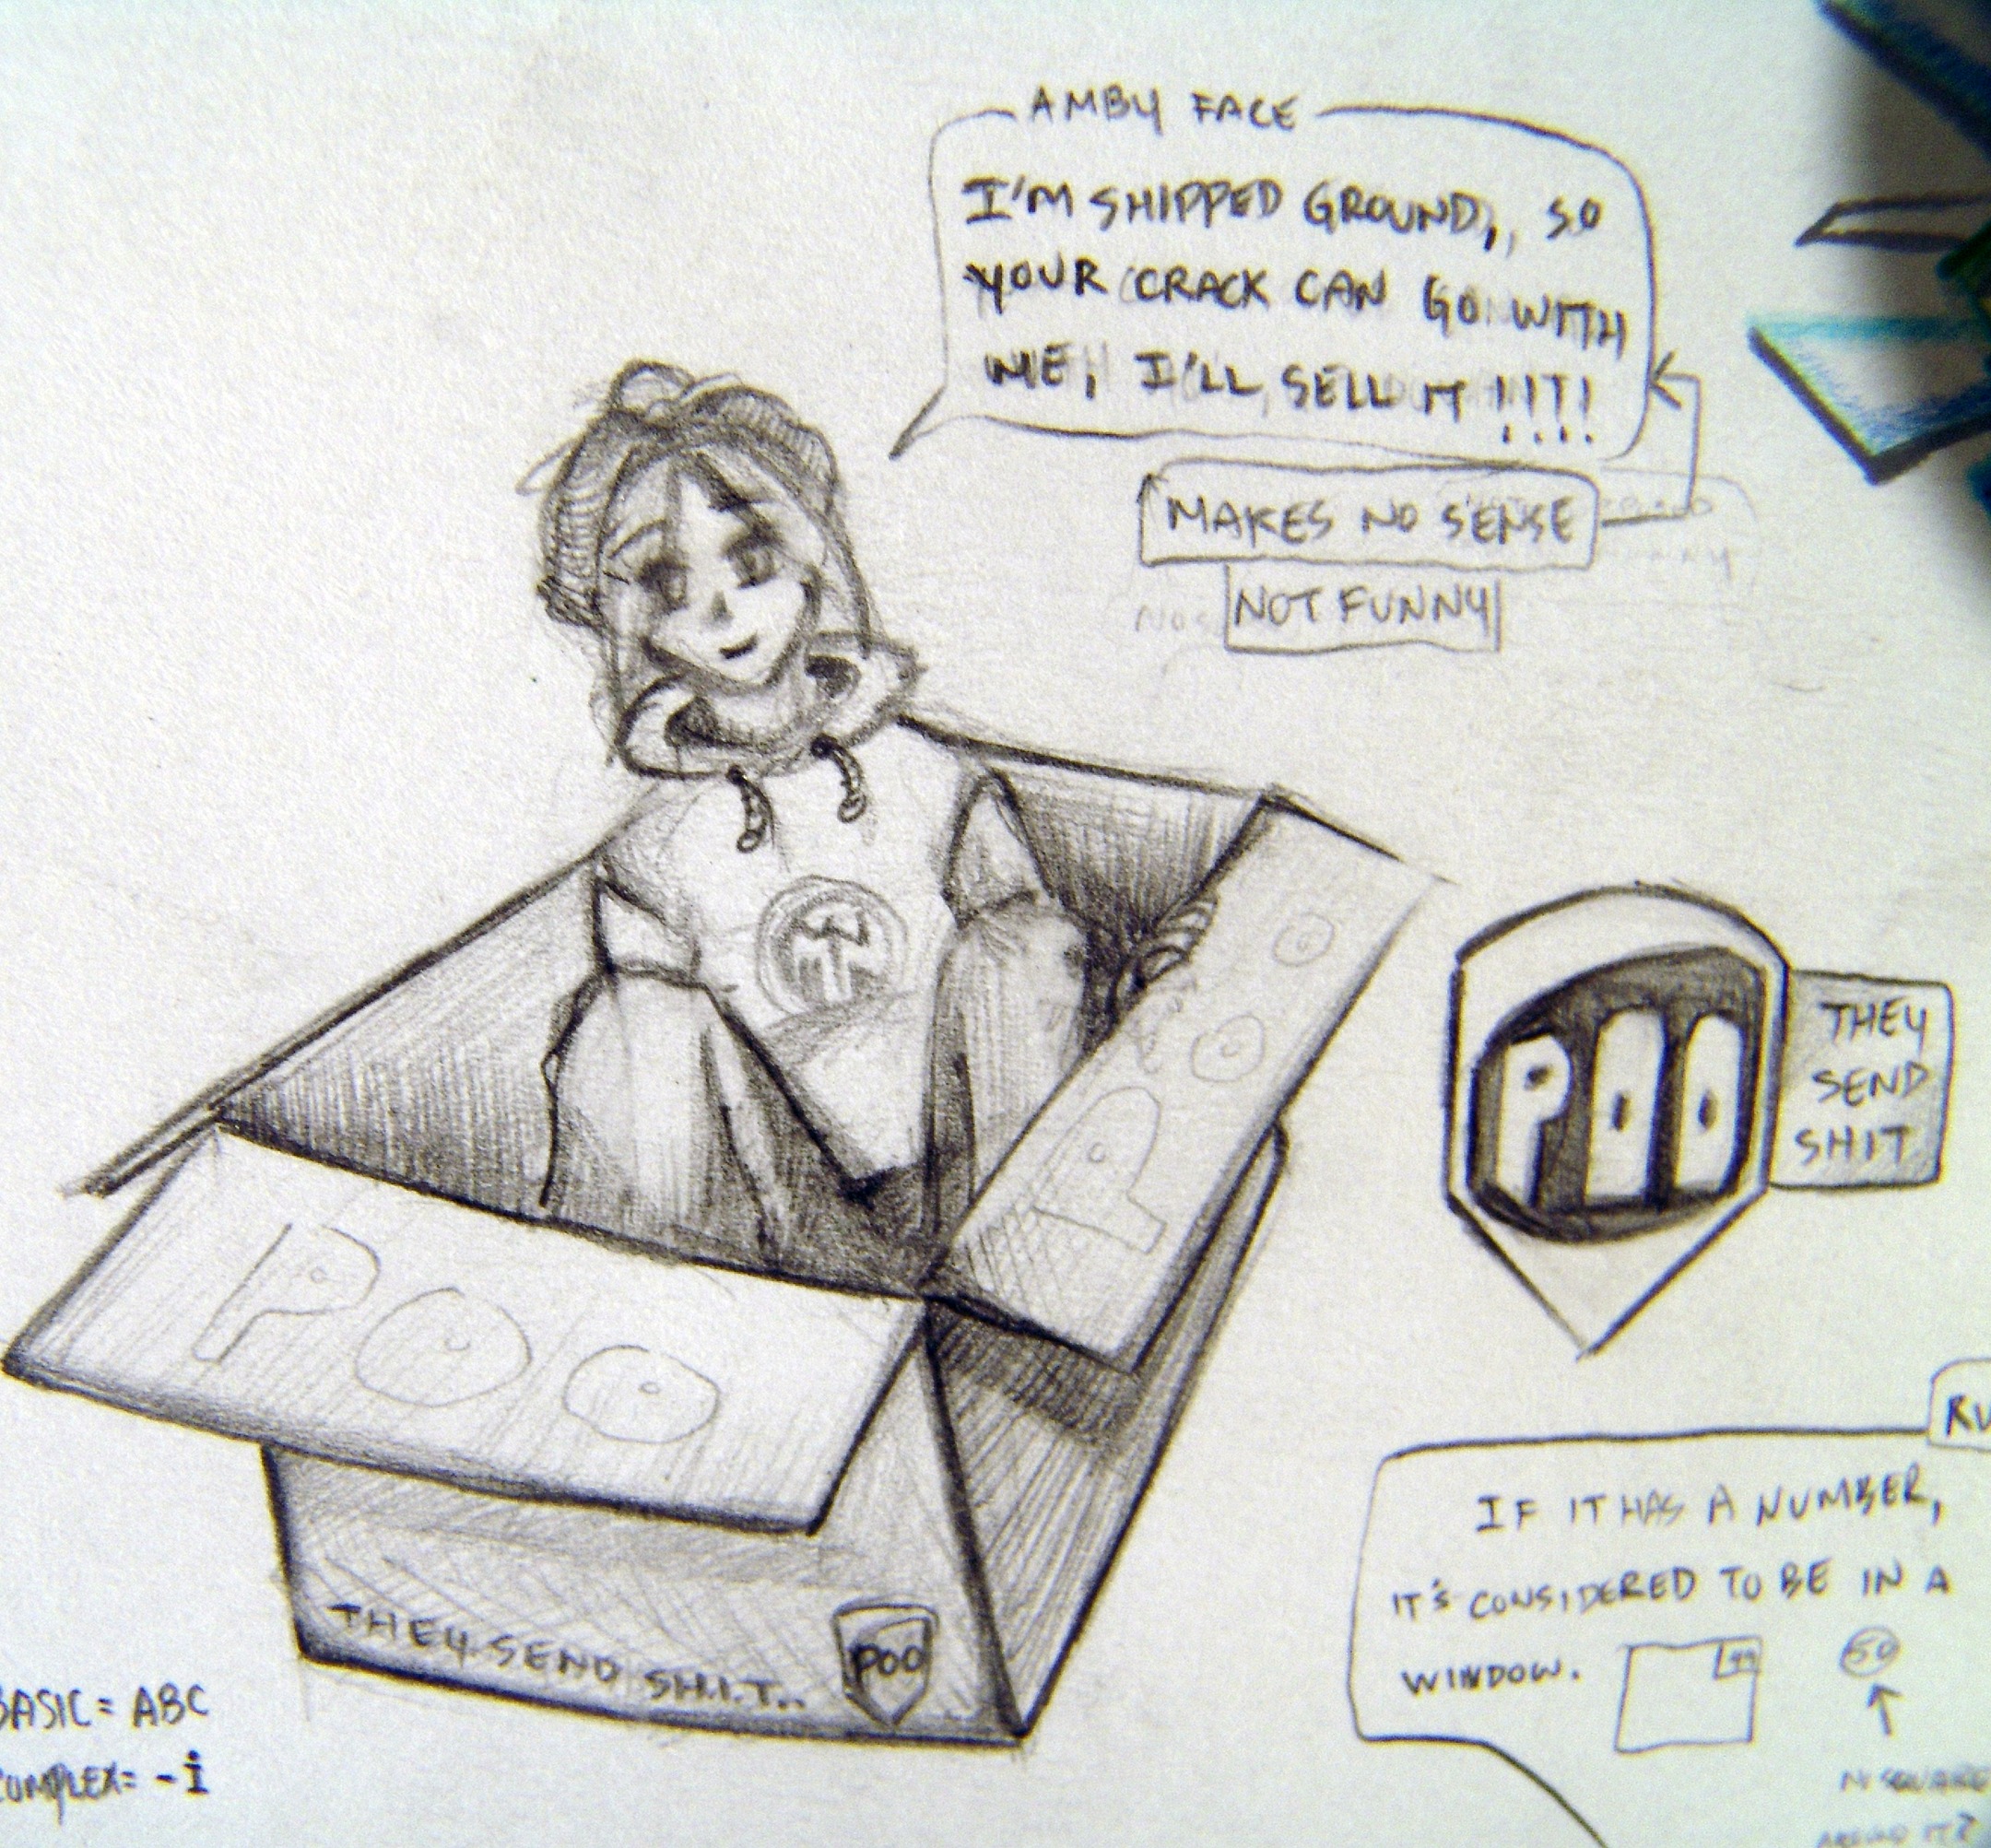 AMBY FACE
I'M SHIPPED GROUND, SO
YOUR CRACK CAN GO WITH
ME, I'LL SELL IT !!!!
MAKES NO SENSE
NOT FUNNY
POO
THEY
SEND
SHIT
POO
POO
THEY SEND SH.I.T..
POO
IF IT HAS A NUMBER,
IT'S CONSIDERED TO BE IN A
WINDOW.
50
BASIC = ABC
COMPLEX = -i